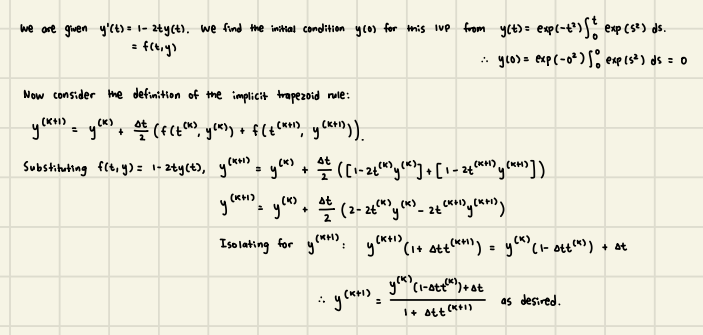 We are given y'(t) = 1 - 2ty(t). We find the initial condition y(0) for this IVP from y(t) = exp(-t²)∫₀ᵗ exp(s²) ds.
= f(t,y)
∴ y(0) = exp(-0²)∫₀⁰ exp(s²) ds = 0
Now consider the definition of the implicit trapezoid rule:
y^(k+1) = y^(k) + Δt/2 (f(t^(k), y^(k)) + f(t^(k+1), y^(k+1))).
Substituting f(t,y) = 1 - 2ty(t), y^(k+1) = y^(k) + Δt/2 ([1 - 2t^(k)y^(k)] + [1 - 2t^(k+1)y^(k+1)])
y^(k+1) = y^(k) + Δt/2 (2 - 2t^(k)y^(k) - 2t^(k+1)y^(k+1))
Isolating for y^(k+1): y^(k+1)(1 + Δtt^(k+1)) = y^(k)(1 - Δtt^(k)) + Δt
∴ y^(k+1) = (y^(k)(1 - Δtt^(k)) + Δt)/(1 + Δtt^(k+1)) as desired.